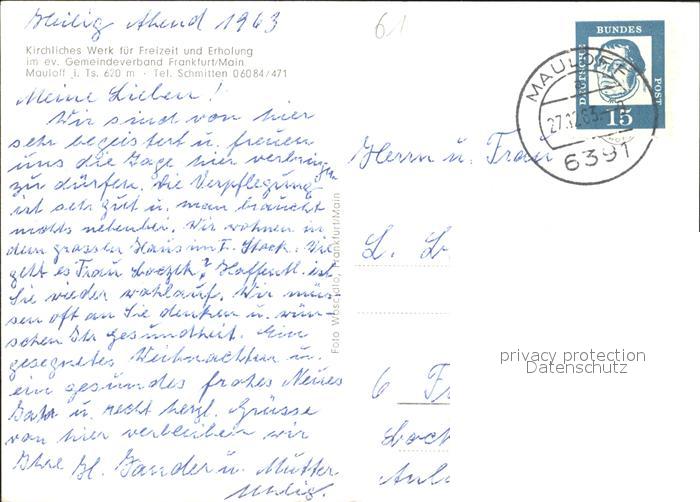 Heilig Abend 1963
61
Kirchliches Werk für Freizeit und Erholung
im ev. Gemeindeverband Frankfurt/Main
Mauloff i. Ts. 620 m · Tel. Schmitten 06084/471
Meine Lieben!
Wir sind von hier
sehr begeistert u. freuen
uns die Tage hier verbringen
zu dürfen. Die Verpflegung
ist sehr gut u. man braucht
nichts nebenbei. Wir wohnen in
dem grossen Haus im I. Stock. Wie
geht es Frau ? Hoffentl. ist
Sie wieder wohlauf. Wir müs-
sen oft an Sie denken u. wün-
schen Ihr Gesundheit. Ein
gesegnetes Weihnachten u.
ein gesundes frohes Neues
Jahr u. recht herzl. Grüsse
von hier verbleiben wir
Ihre Gl. Zander u. Mutter
Foto Wassilla, Frankfurt/Main
DEUTSCHE BUNDES POST
15
MAULOFF
27.12.63
6391
Herrn u. Frau
L. L
6 Fr
privacy protection
Datenschutz